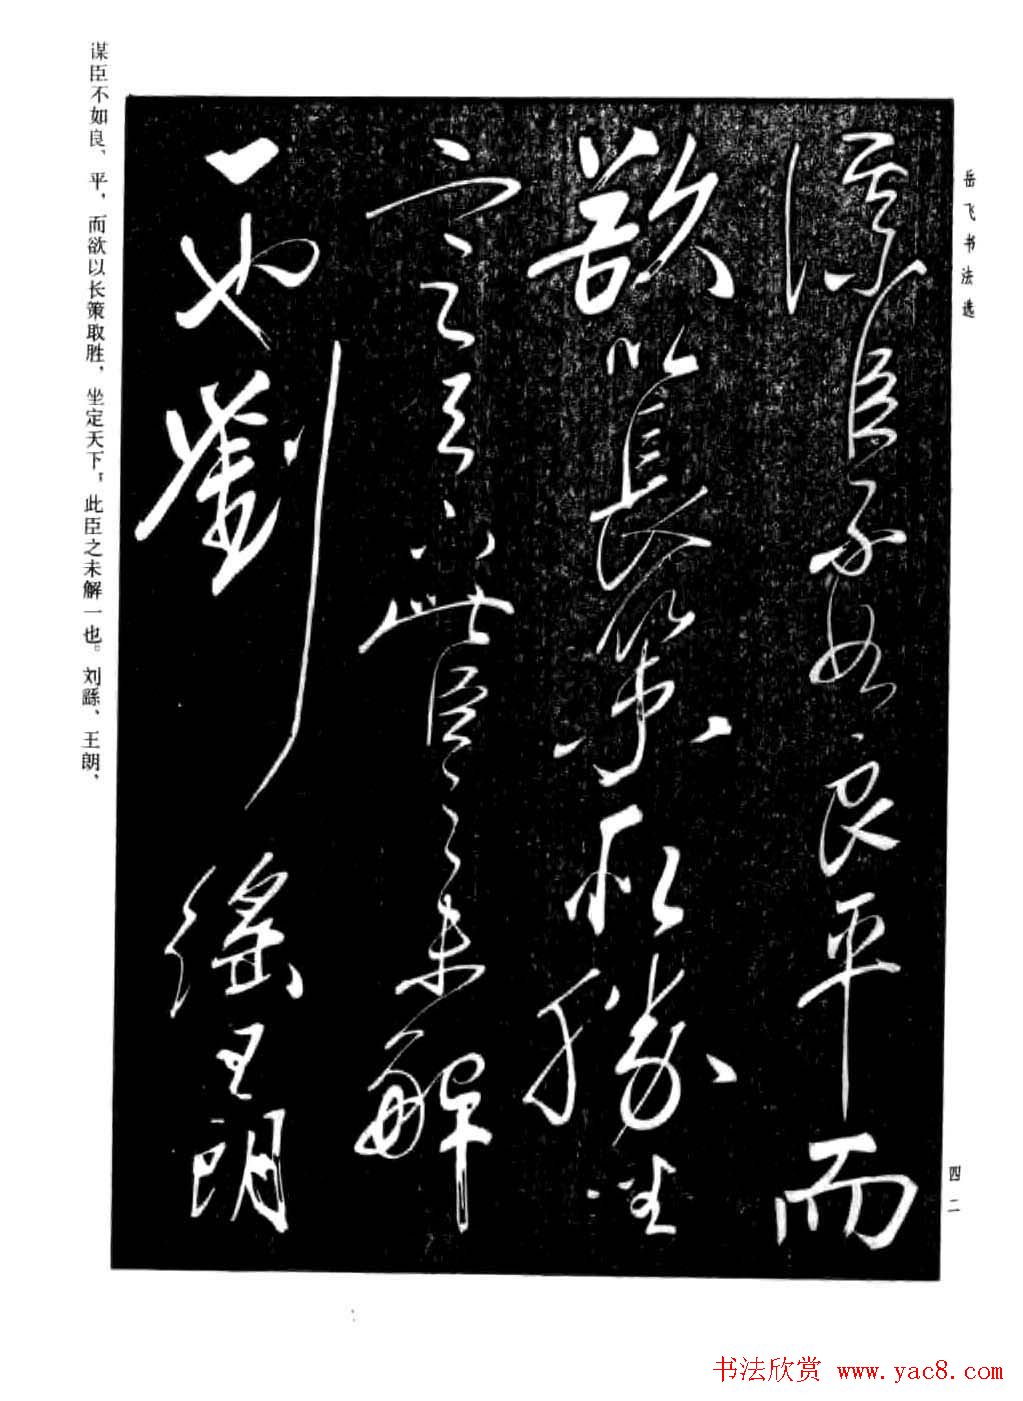 岳飞书法选
谋臣不如良平而
欲以長策取勝坐
定天下此臣之未解
一也劉繇王朗
谋臣不如良、平，而欲以长策取胜，坐定天下，此臣之未解一也。刘繇、王朗、
四二
书法欣赏 www.yac8.com